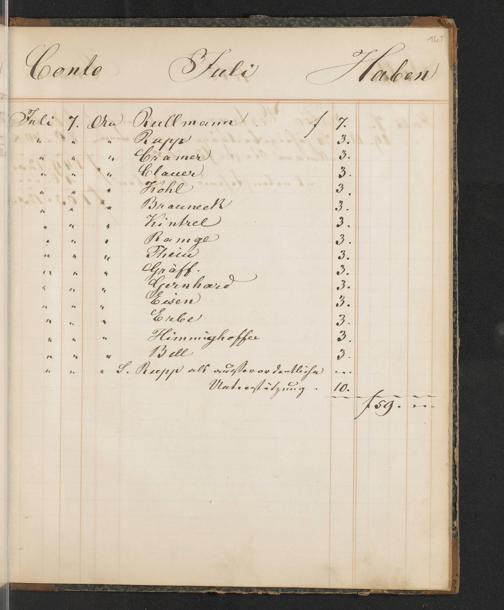 Conto Juli Haben
Juli 7. Ora Rullmann f 7.
" " " Rupp 3.
" " " Cramer 3.
" " " Clauer 3.
" " " Kohl 3.
" " " Brauneck 3.
" " " Kintzel 3.
" " " Ramge 3.
" " " Thein 3.
" " " Gräff. 3.
" " " Gernhard 3.
" " " Eisen 3.
" " " Erbe 3.
" " " Himmighoffen 3.
" " " Bell 3.
" " " S. Rupp als außerordentliche
Unterstützung . 10.
f 59.